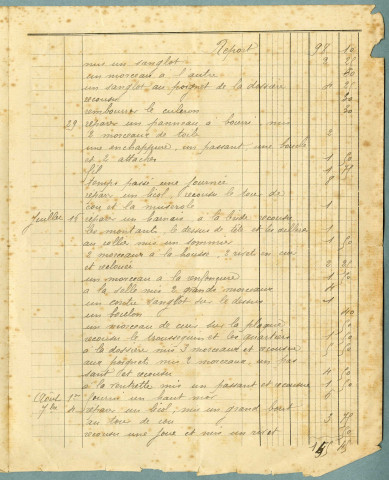 Report 98 10
mis un sanglot 2 25
un morceau à l'autre 50
un sanglot au poignet de la dossière 1 25
recousu 30
rembourrer le culeron 50
29 réparer un panneau à bourre, mis
2 morceaux de 2
une enchappure, un passant, une boucle
et 2 attaches 1 50
fil 1 75
temps passé une journée 8
réparer un licol, recousu le tour de
cou et la muserole 1
Juillet 16 réparer un harnais à la bride recousu
les montants, le dessus de tête et les œillères 1
au collier mis un sommier 1 50
2 morceaux à la housse, 2 rivet en cuir
et 2 25
un morceau à la 1 50
à la selle mis 2 grands morceaux 4
un contre sanglot sur le dessus 1
un boulon 40
un morceau de cuir sur la plaque 50
recousu le troussequin et les quartiers 1 50
à la dossière mis 3 morceaux et recousu 5 50
aux mis 2 morceaux, un pas
sant et recousu 4 50
à la ventrette mis un passant et recousu 1 50
Août 1er fourni un haut mors 6
7bre réparer un licol, mis un grand bout
au tour de cou 3 75
recousu une joue et mis un rivet 50